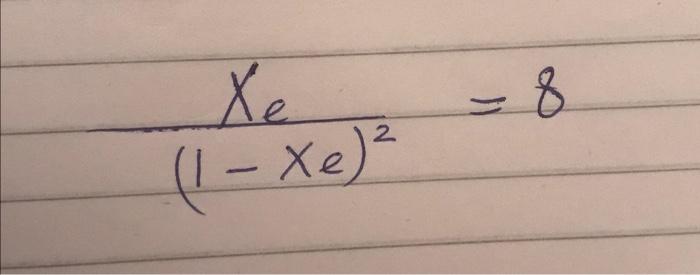 Xe
(1 - Xe)² = 8